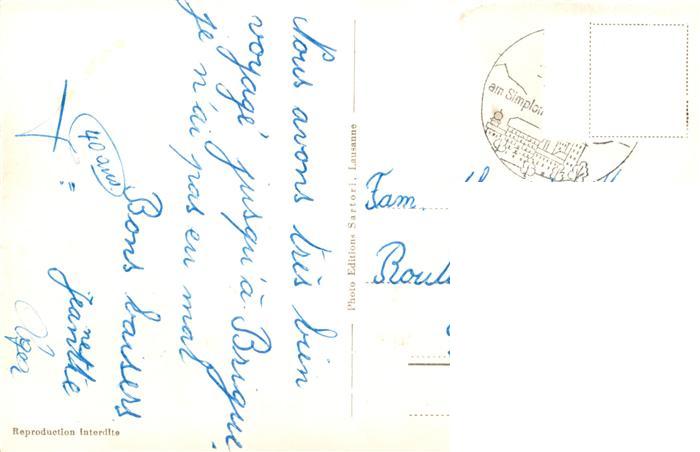 Nous avons très bien
voyagé jusqu'à Brigue.
je n'ai pas eu mal
40 ans
Bons baisers
jeanette
Photo Editions Sartori, Lausanne
Reproduction Interdite
am Simplon
Fam.